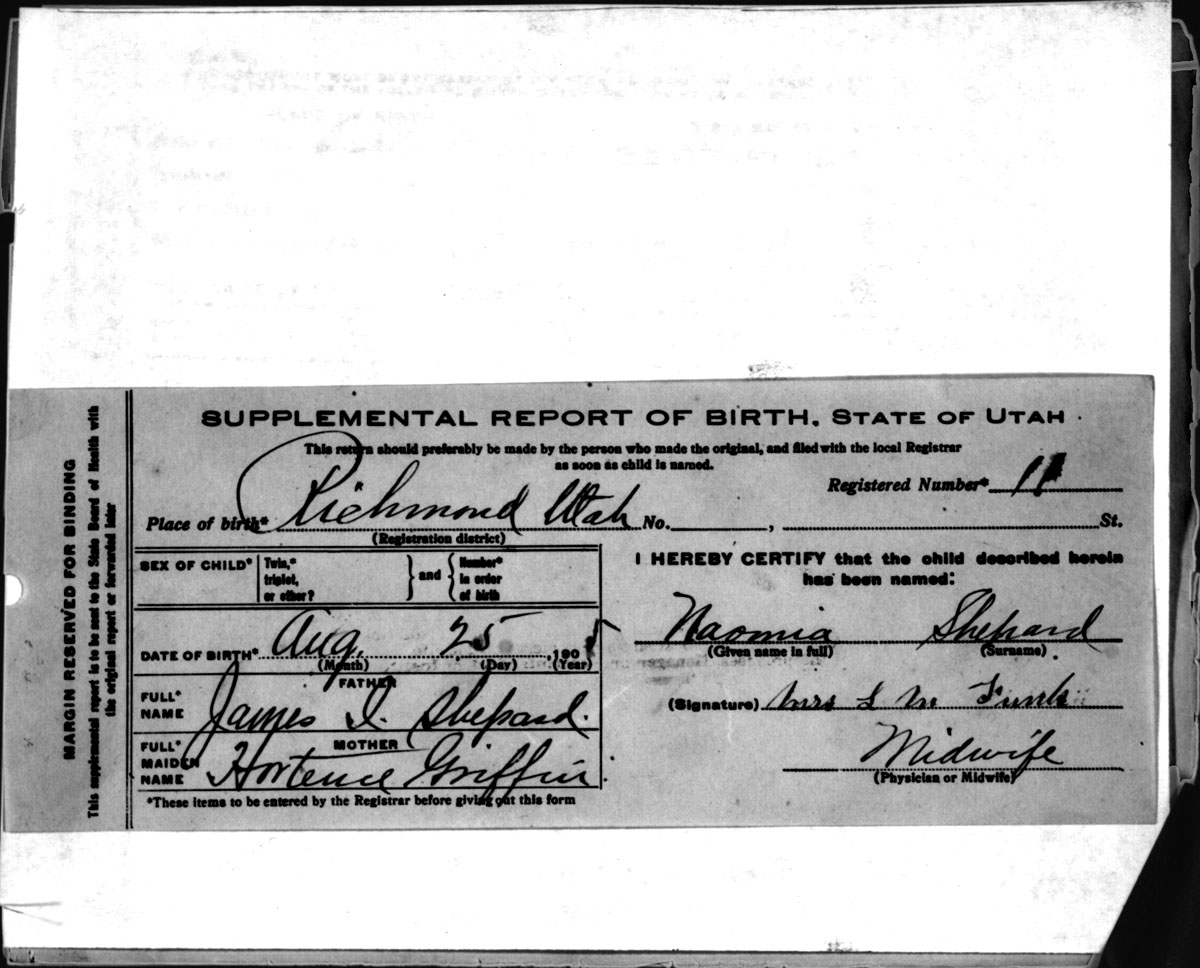 SUPPLEMENTAL REPORT OF BIRTH, STATE OF UTAH
This return should preferably be made by the person who made the original, and filed with the local Registrar
as soon as child is named.
Registered Number* 11
Place of birth* Richmond Utah No. , St.
(Registration district)
SEX OF CHILD* Twin,* triplet, or other? } and { Number* in order of birth
DATE OF BIRTH* Aug. 25 190
(Month) (Day) (Year)
FATHER
FULL* NAME James I. Shepard.
MOTHER
FULL* MAIDEN NAME Hortence Griffin
*These items to be entered by the Registrar before giving out this form
I HEREBY CERTIFY that the child described herein
has been named:
Naomia Shepard
(Given name in full) (Surname)
(Signature) Mrs L M Funk
Midwife
(Physician or Midwife)
MARGIN RESERVED FOR BINDING
This supplemental report is to be sent to the State Board of Health with
the original report or forwarded later